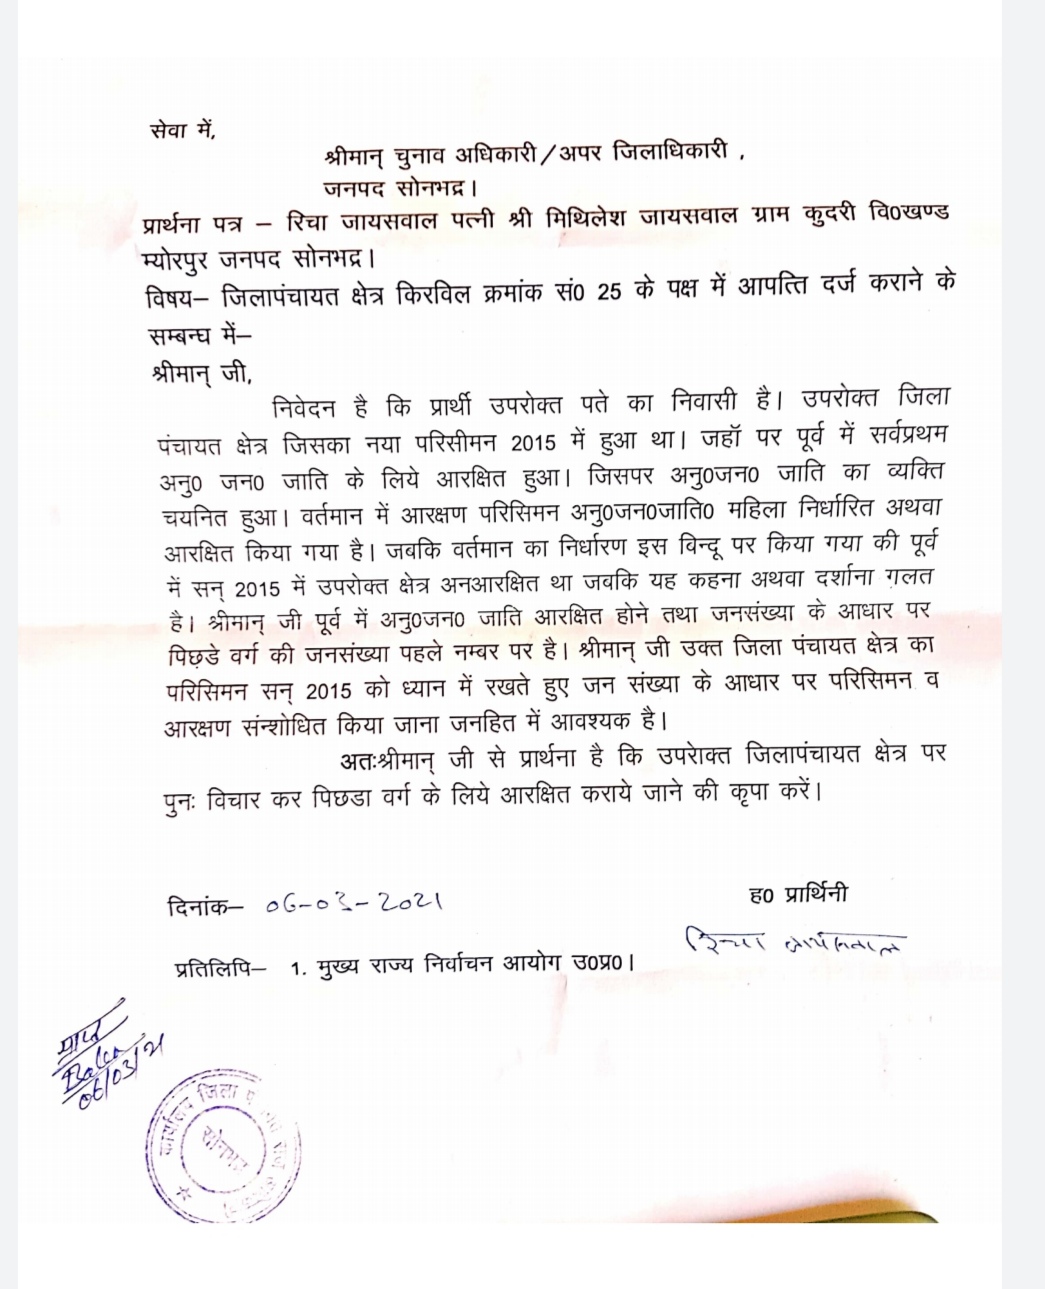 सेवा में,
श्रीमान् चुनाव अधिकारी/अपर जिलाधिकारी ,
जनपद सोनभद्र।
प्रार्थना पत्र – रिचा जायसवाल पत्नी श्री मिथिलेश जायसवाल ग्राम कुदरी वि0खण्ड
म्योरपुर जनपद सोनभद्र।
विषय– जिलापंचायत क्षेत्र किरविल क्रमांक सं0 25 के पक्ष में आपत्ति दर्ज कराने के
सम्बन्ध में–
श्रीमान् जी,
निवेदन है कि प्रार्थी उपरोक्त पते का निवासी है। उपरोक्त जिला
पंचायत क्षेत्र जिसका नया परिसीमन 2015 में हुआ था। जहॉ पर पूर्व में सर्वप्रथम
अनु0 जन0 जाति के लिये आरक्षित हुआ। जिसपर अनु0जन0 जाति का व्यक्ति
चयनित हुआ। वर्तमान में आरक्षण परिसिमन अनु0जन0जाति0 महिला निर्धारित अथवा
आरक्षित किया गया है। जबकि वर्तमान का निर्धारण इस विन्दू पर किया गया की पूर्व
में सन् 2015 में उपरोक्त क्षेत्र अनआरक्षित था जबकि यह कहना अथवा दर्शाना ग़लत
है। श्रीमान् जी पूर्व में अनु0जन0 जाति आरक्षित होने तथा जनसंख्या के आधार पर
पिछड़े वर्ग की जनसंख्या पहले नम्बर पर है। श्रीमान् जी उक्त जिला पंचायत क्षेत्र का
परिसिमन सन् 2015 को ध्यान में रखते हुए जन संख्या के आधार पर परिसिमन व
आरक्षण संन्शोधित किया जाना जनहित में आवश्यक है।
अतःश्रीमान् जी से प्रार्थना है कि उपरोक्त जिलापंचायत क्षेत्र पर
पुनः विचार कर पिछडा वर्ग के लिये आरक्षित कराये जाने की कृपा करें।
दिनांक– 06-03-2021
ह0 प्रार्थिनी
रिचा जायसवाल
प्रतिलिपि– 1. मुख्य राज्य निर्वाचन आयोग उ0प्र0।
प्राप्त
06/03/21
कार्यालय जिला
सोनभद्र